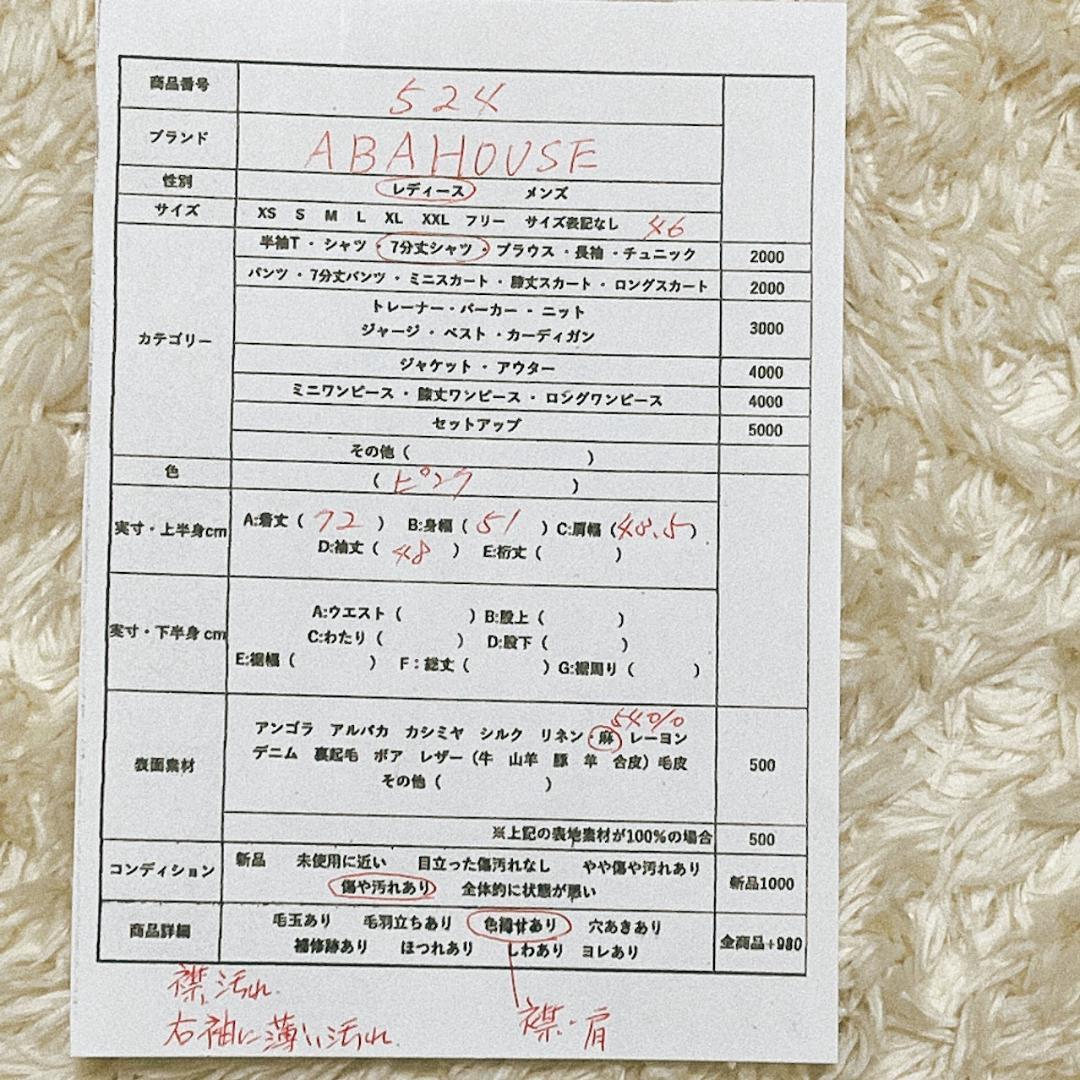 商品番号 524
ブランド ABAHOUSE
性別 レディース メンズ
サイズ XS S M L XL XXL フリー サイズ表記なし 46
半袖T・シャツ・7分丈シャツ・ブラウス・長袖・チュニック 2000
パンツ・7分丈パンツ・ミニスカート・膝丈スカート・ロングスカート 2000
トレーナー・パーカー・ニット
カテゴリー ジャージ・ベスト・カーディガン 3000
ジャケット・アウター 4000
ミニワンピース・膝丈ワンピース・ロングワンピース 4000
セットアップ 5000
その他( )
色 (ピンク)
実寸・上半身cm A:着丈(72) B:身幅(51) C:肩幅(48.5)
D:袖丈(48) E:裄丈( )
A:ウエスト( ) B:股上( )
実寸・下半身cm C:わたり( ) D:股下( )
E:裾幅( ) F:総丈( ) G:裾周り( )
54%
アンゴラ アルパカ カシミヤ シルク リネン・麻 レーヨン
表面素材 デニム 裏起毛 ボア レザー(牛 山羊 豚 羊 合皮)毛皮 500
その他( )
※上記の表地素材が100%の場合 500
コンディション 新品 未使用に近い 目立った傷汚れなし やや傷や汚れあり
傷や汚れあり 全体的に状態が悪い 新品1000
商品詳細 毛玉あり 毛羽立ちあり 色褪せあり 穴あきあり
補修跡あり ほつれあり しわあり ヨレあり 全商品+980
襟、汚れ
右袖に薄い汚れ
襟・肩